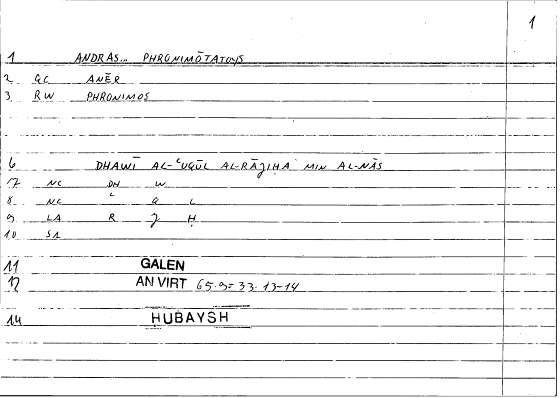 1
1 ANDRAS... PHRONIMŌTATOYS
2 GC ANĒR
3 RW PHRONIMOS
6 DHAWĪ AL-ʿUQŪL AL-RĀJIḤA MIN AL-NĀS
7 NC DH W
8 NC ʿ Q L
9 LA R J Ḥ
10 SA
11 GALEN
12 AN VIRT 65.9=33.13-14
14 ḤUBAYSH